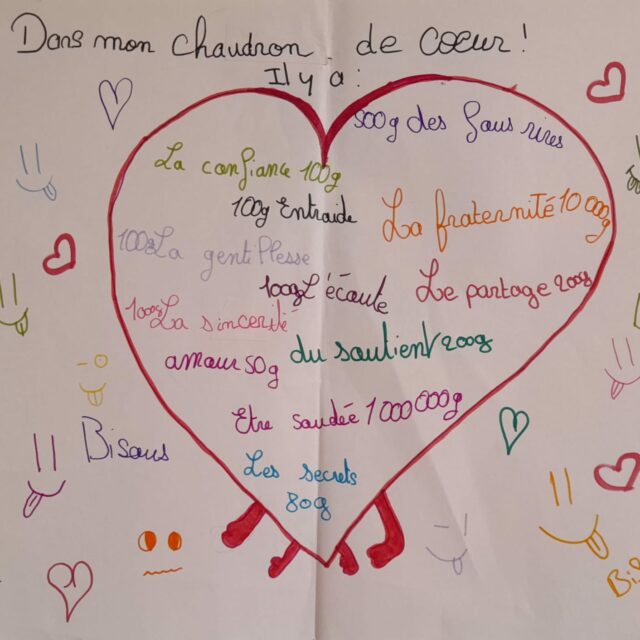 Dans mon chaudron de coeur !
Il y a :
500g des fous rires
La confiance 100g
100g Entraide
La fraternité 10 000g
100g La gentillesse
100g L'écoute
Le partage 200g
100g La sincerité
amour 50g
du soutient 200g
Etre soudée 1 000 000g
Bisous
Les secrets
80g